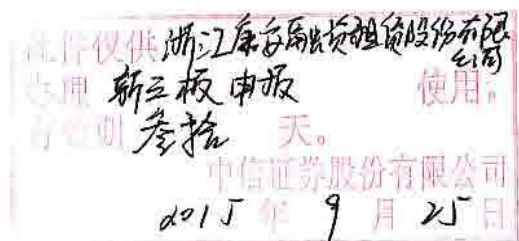 此件仅供浙江康安融资租赁股份有限公司
办理 新三板申报 使用。
有效期 叁拾 天。
中信证券股份有限公司
2015 年 9 月 25 日